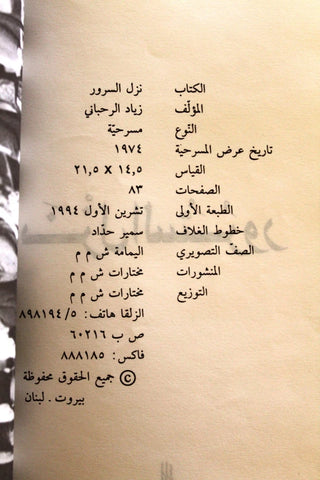 الكتاب نزل السرور
المؤلّف زياد الرحباني
النّوع مسرحيّة
تاريخ عرض المسرحية ١٩٧٤
القياس ١٤,٥ X ٢١,٥
الصفحات ٨٣
الطبعة الأولى تشرين الأول ١٩٩٤
خطوط الغلاف سمير حدّاد
الصفّ التصويري اليمامة ش م م
المنشورات مختارات ش م م
التوزيع مختارات ش م م
الزلقا هاتف: ٨٩٨١٩٤/٥
ص ب ٦٠٢١٦
فاكس: ٨٨٨١٨٥
© جميع الحقوق محفوظة
بيروت . لبنان